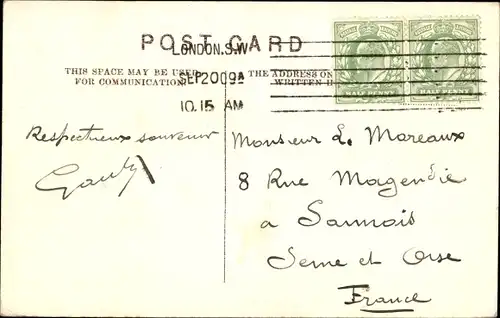 POST CARD
LONDON.S.W
SEP 20 09
10.15 AM
THIS SPACE MAY BE USED
FOR COMMUNICATION
THE ADDRESS ON
WRITTEN H
HALFPENNY HALFPENNY
Respectueux souvenir
Monsieur L. Moreaux
8 Rue Magendie
a Sannois
Seine et Oise
France